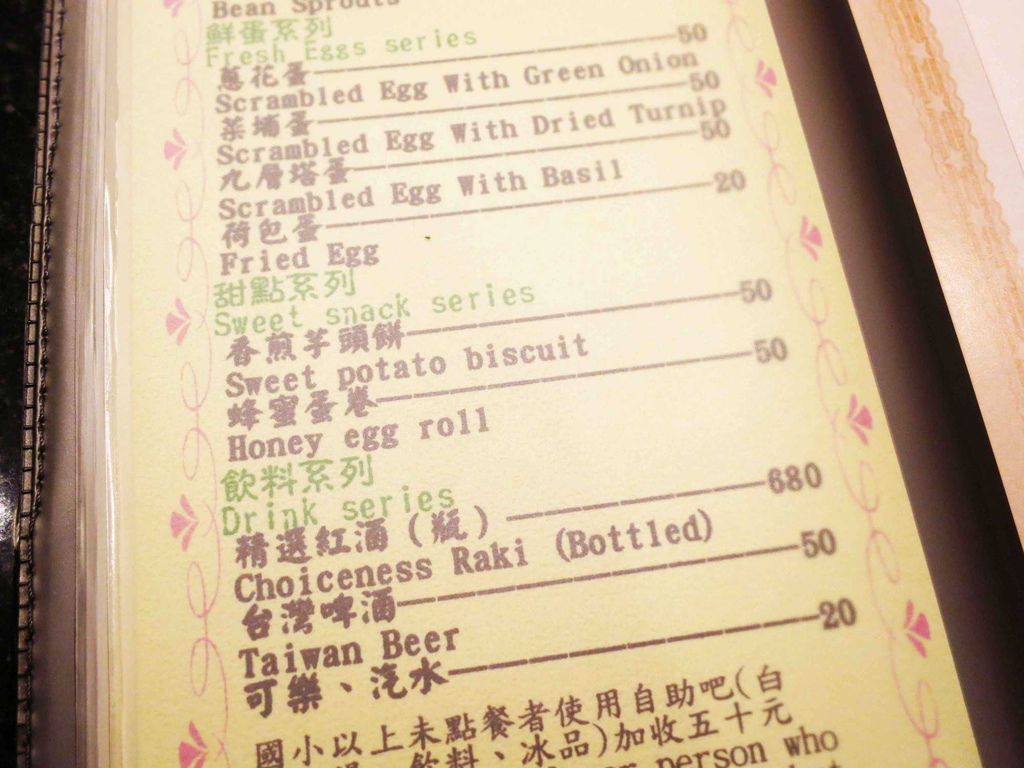 Bean Sprouts
鮮蛋系列
Fresh Eggs series
蔥花蛋 50
Scrambled Egg With Green Onion
菜埔蛋 50
Scrambled Egg With Dried Turnip
九層塔蛋 50
Scrambled Egg With Basil
荷包蛋 20
Fried Egg
甜點系列
Sweet snack series
香煎芋頭餅 50
Sweet potato biscuit
蜂蜜蛋卷 50
Honey egg roll
飲料系列
Drink series
精選紅酒(瓶) 680
Choiceness Raki (Bottled)
台灣啤酒 50
Taiwan Beer
可樂、汽水 20
國小以上未點餐者使用自助吧(白
飲料、冰品)加收五十元
person who